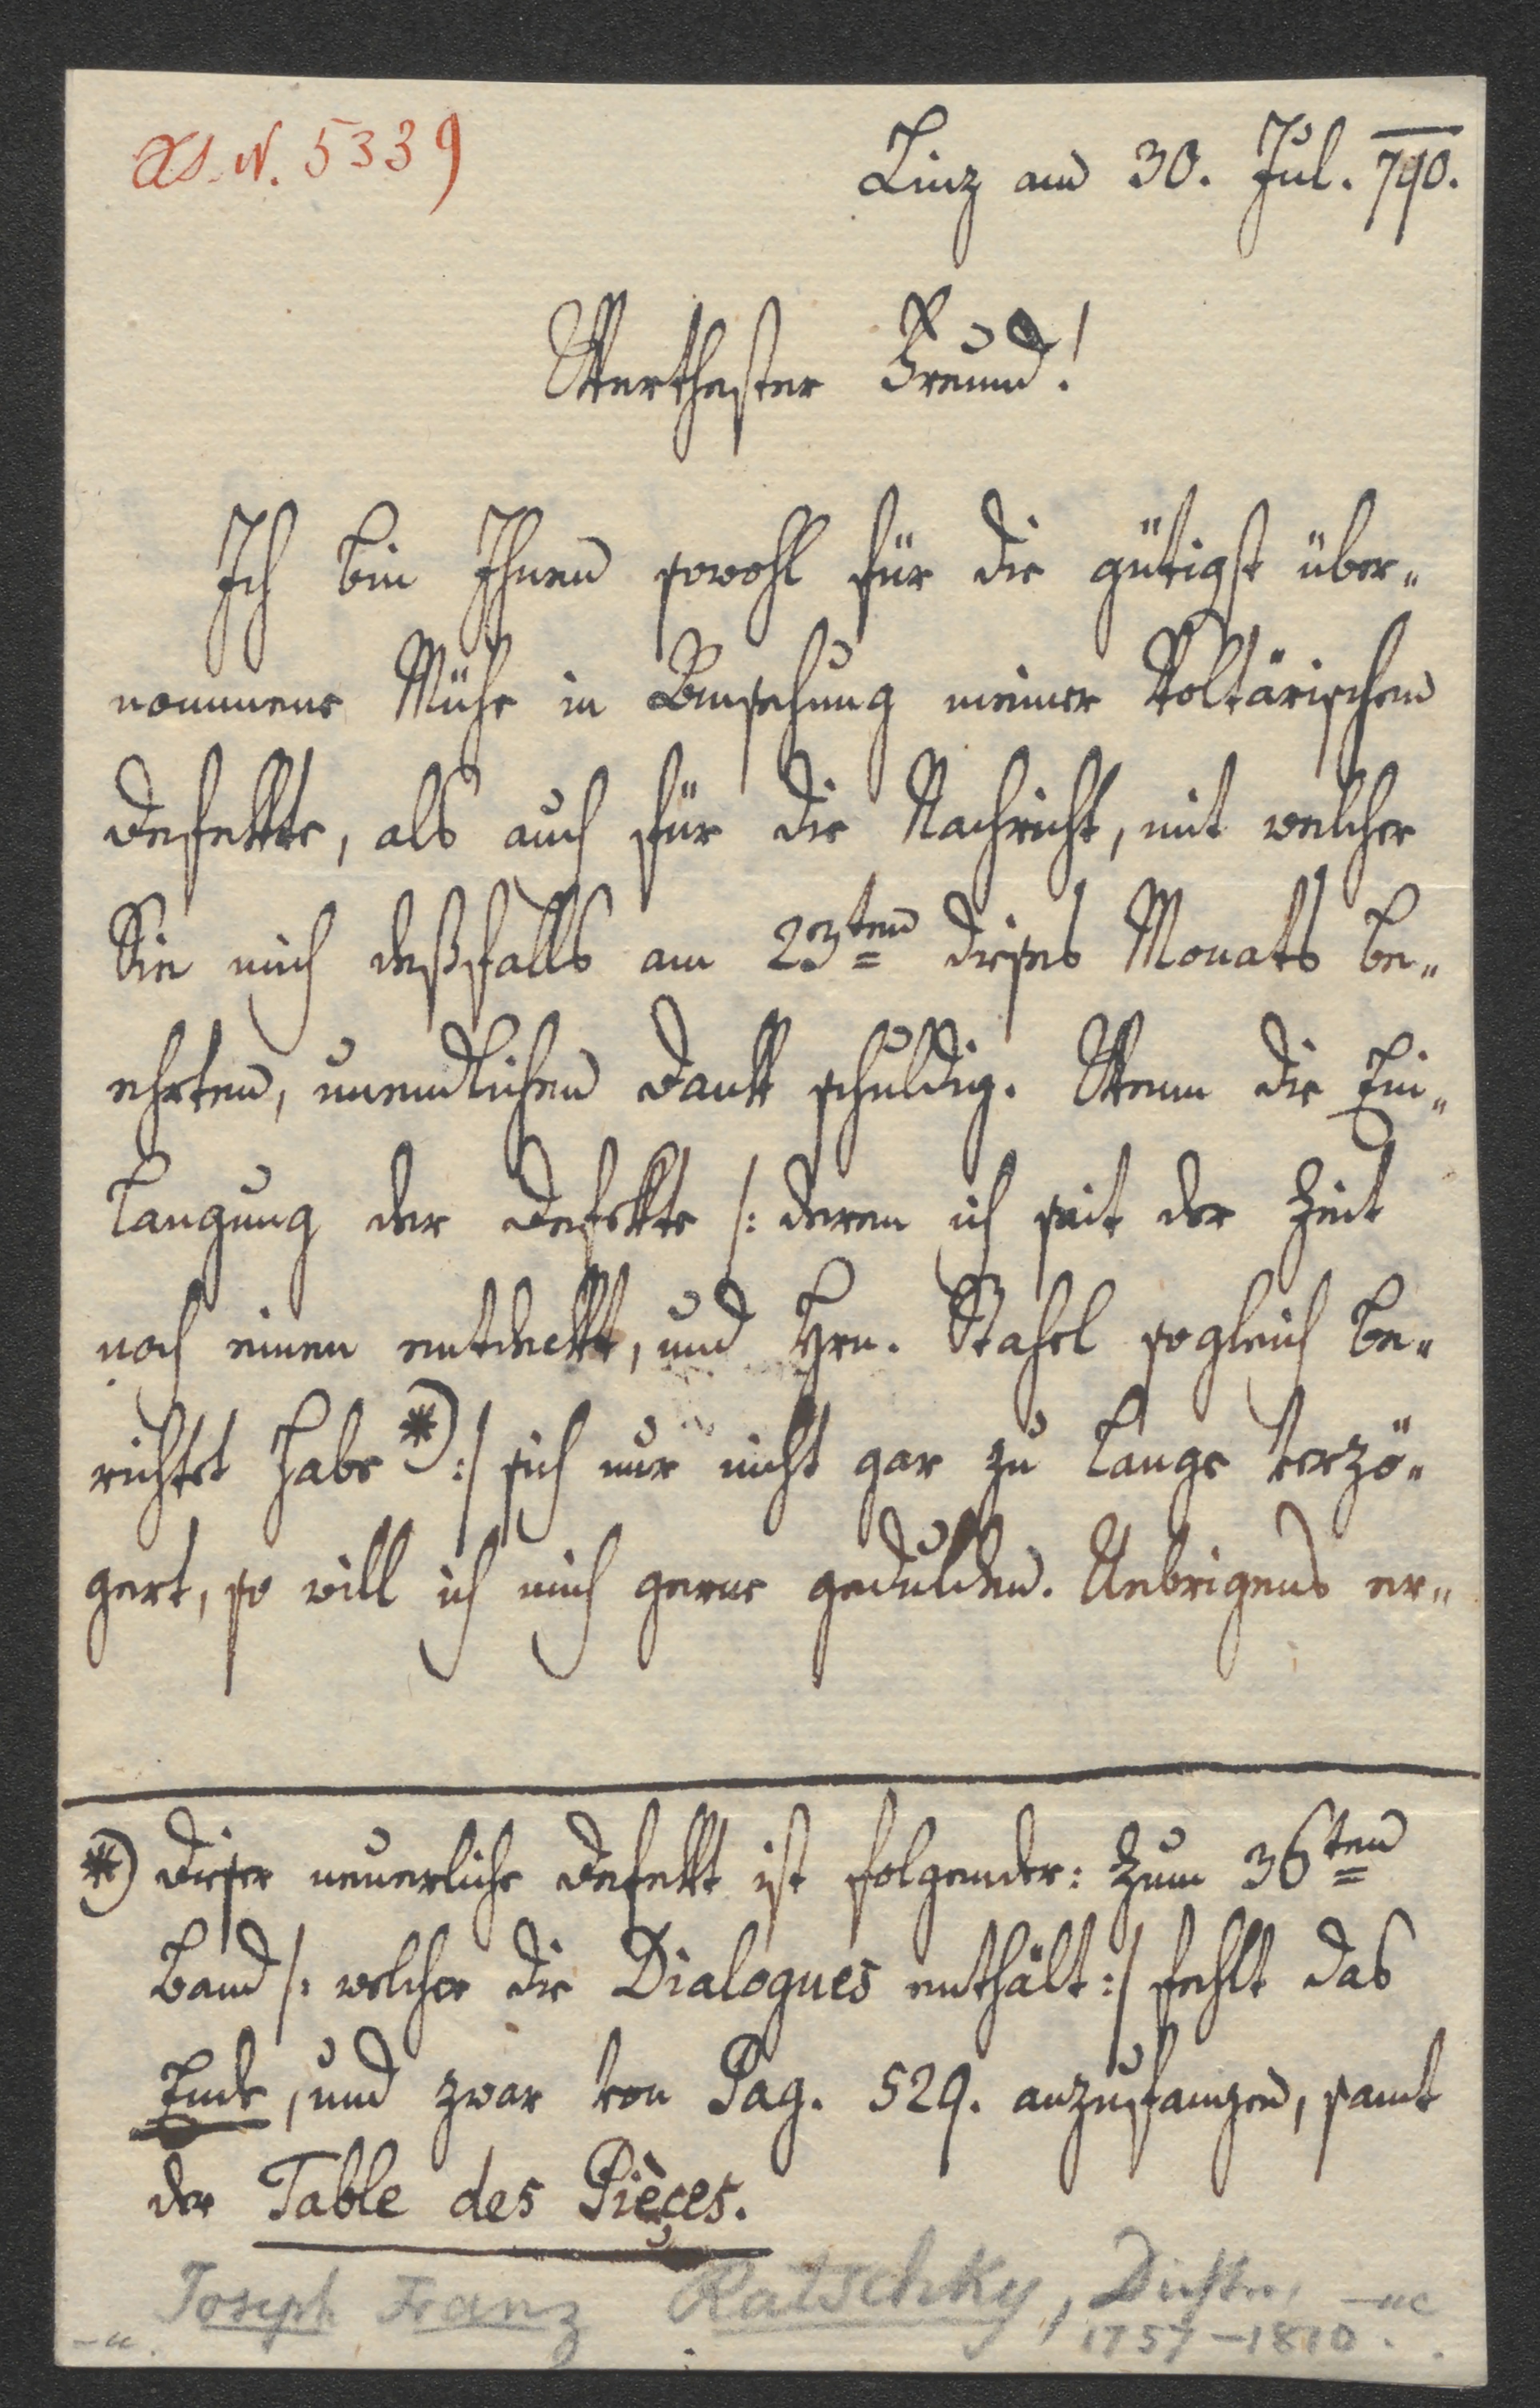 As. N. 5339
Linz am 30. Jul. 790.
Werthester Freund!
Ich bin Ihnen sowohl für die gütigst über-
nommene Mühe in Ansehung meiner Voltärischen
Defekte, als auch für die Nachricht, mit welcher
Sie mich deßfalls am 23ten dieses Monats be-
ehrten, unendlichen Dank schuldig. Wenn die Ein-
langung der Defekte /: deren ich seit der Zeit
noch einen entdeckt, und Hrn. Stahel sogleich be-
richtet habe *) :/ sich nur nicht gar zu lange verzö-
gert, so will ich mich gerne gedulden. Uebrigens er-
*) Dieser neuerliche Defekt ist folgender: Zum 36ten
Band /: welcher die Dialogues enthält :/ fehlt das
Ende, und zwar von Pag. 529. anzufangen, samt
der Table des Pièçes.
Joseph Franz Ratschky, Dichter,
1757-1810.